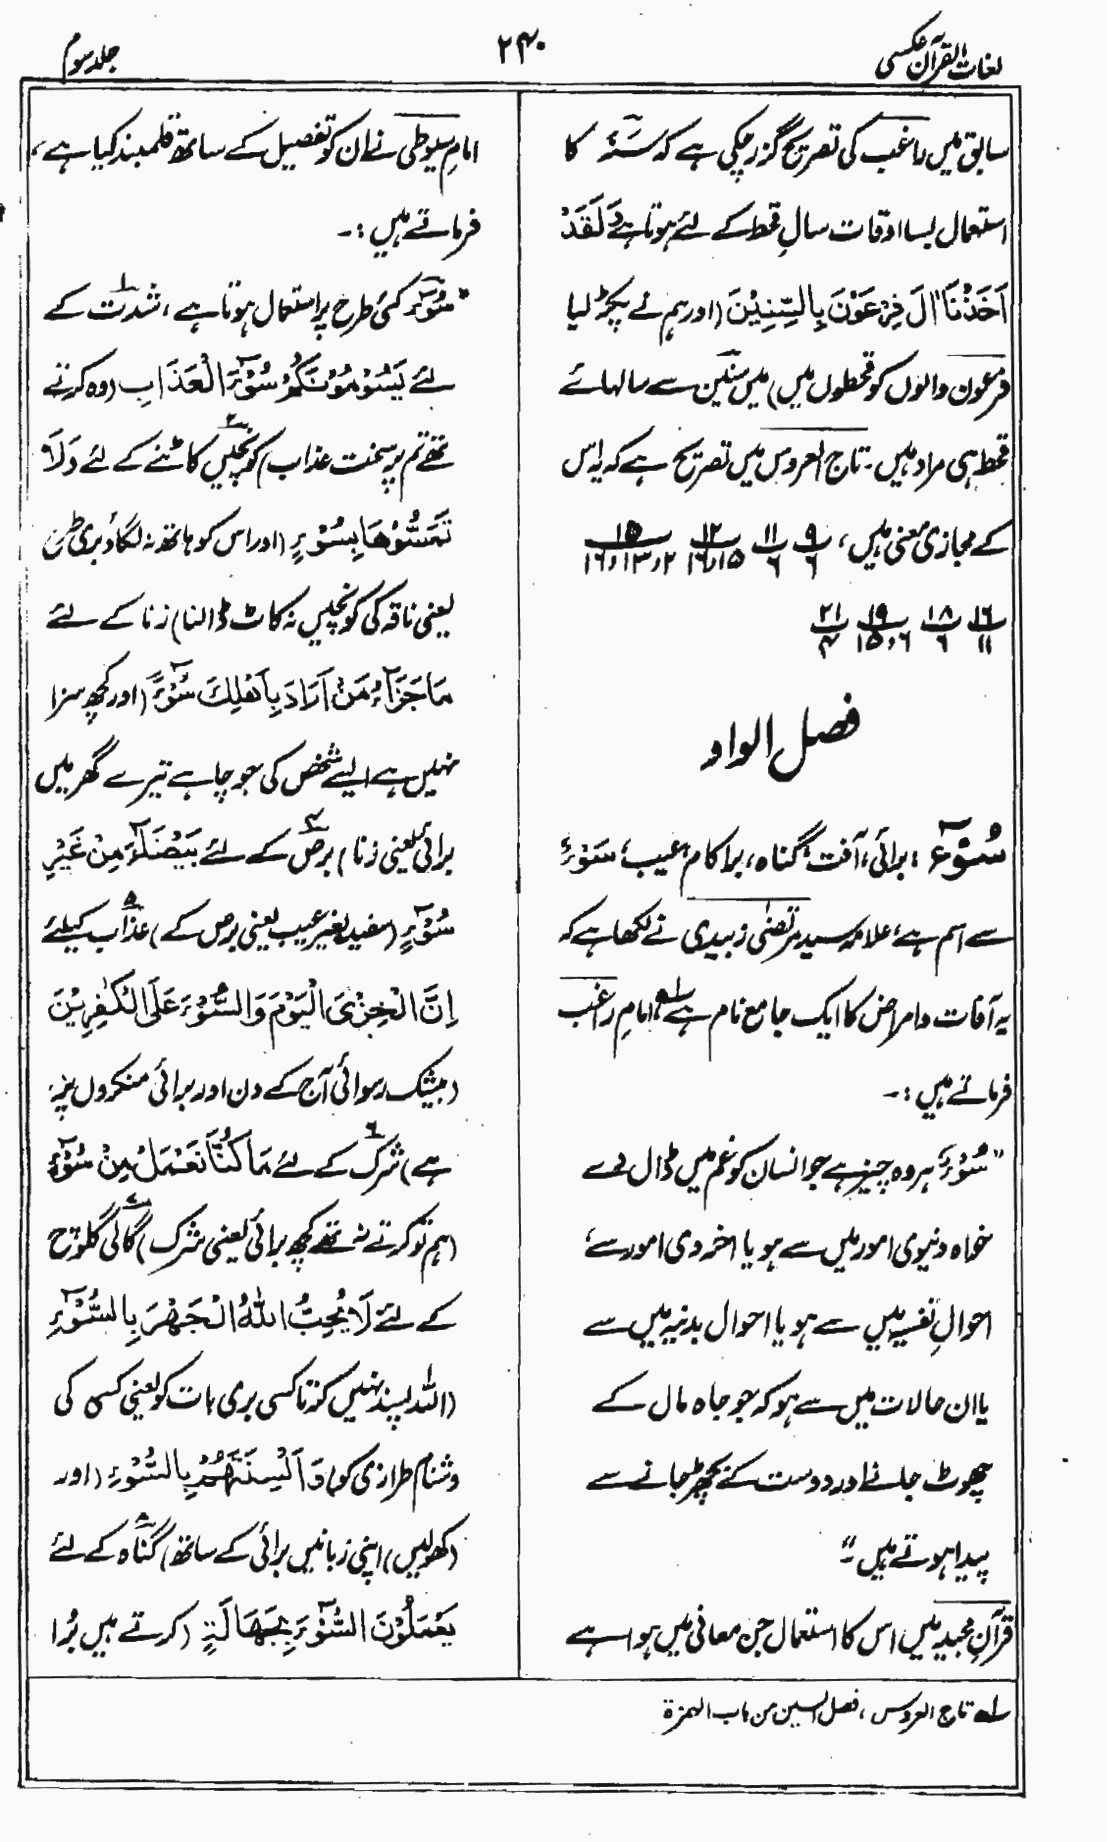 لغات القرآن عکسی
۲۴۰
جلد سوم
سابق میں راغب کی تصریح گزر چکی ہے کہ سَنَۃٌ کا
استعمال بسا اوقات سالِ قحط کے لئے ہوتا ہے وَلَقَدْ
اَخَذْنَا اٰلَ فِرْعَوْنَ بِالسِّنِیْنَ (اور ہم نے پکڑ لیا
فرعون والوں کو قحطوں میں) میں سنین سے سالہائے
قحط ہی مراد ہیں۔ تاج العروس میں تصریح ہے کہ یہ اس
کے مجازی معنی ہیں، ۹/۶ ۱۱/۶ ۱۲/۱۵،۱۶ ۱۵/۲،۱۳،۱۶
۱۶/۱۱ ۱۸/۶ ۱۹/۶،۱۵ ۲۱/۴
فصل الواو
سُوْٓءٌ: برائی، آفت، گناہ، برا کام، عیب، سَوْءٌ
سے اسم ہے، علامہ سید مرتضیٰ زبیدی نے لکھا ہے کہ
یہ آفات و امراض کا ایک جامع نام ہے ۱؎، امام راغب
فرماتے ہیں:۔
"سُوْٓءٌ ہر وہ چیز ہے جو انسان کو غم میں ڈال دے
خواہ دنیوی امور میں سے ہو یا اخروی امور سے
احوالِ نفسیہ میں سے ہو یا احوال بدنیہ میں سے
یا ان حالات میں سے ہو کہ جو جاہ مال کے
چھوٹ جانے اور دوست کے بچھڑ جانے سے
پیدا ہوتے ہیں۔"
قرآنِ مجید میں اس کا استعمال جن معانی میں ہوا ہے
امام سیوطی نے ان کو تفصیل کے ساتھ قلمبند کیا ہے،
فرماتے ہیں:۔
"سُوْٓء کئی طرح پر استعمال ہوتا ہے، شدت ۱ کے
لئے یَسُوْمُوْنَکُمْ سُوْٓءَ الْعَذَابِ (وہ کرتے
تھے تم پر سخت عذاب) کونچیں ۲ کاٹنے کے لئے وَلَا
تَمَسُّوْھَا بِسُوْٓءٍ (اور اس کو ہاتھ نہ لگاؤ بری طرح
یعنی ناقہ کی کونچیں نہ کاٹ ڈالنا) زنا کے لئے
مَا جَزَآءُ مَنْ اَرَادَ بِاَھْلِكَ سُوْٓءًا (اور کچھ سزا
نہیں ہے ایسے شخص کی جو چاہے تیرے گھر میں
برائی یعنی زنا) برص ۴ کے لئے بَیْضَآءَ مِنْ غَیْرِ
سُوْٓءٍ (سفید بغیر عیب یعنی برص کے) عذاب ۵ کیلئے
اِنَّ الْخِزْیَ الْیَوْمَ وَالسُّوْٓءَ عَلَی الْکٰفِرِیْنَ
(بیشک رسوائی آج کے دن اور برائی منکروں پر
ہے) شرک ۶ کے لئے مَا کُنَّا نَعْمَلُ مِنْ سُوْٓءٍ
(ہم تو کرتے نہ تھے کچھ برائی یعنی شرک) گالی ۷ گلوج
کے لئے لَا یُحِبُّ اللّٰهُ الْجَھْرَ بِالسُّوْٓءِ
(اللہ پسند نہیں کرتا کسی بری بات کو یعنی کسی کی
دشنام طرازی کو) وَاَلْسِنَتَھُمْ بِالسُّوْٓءِ (اور
(کھولیں) اپنی زبانیں برائی کے ساتھ) گناہ ۸ کے لئے
یَعْمَلُوْنَ السُّوْٓءَ بِجَھَالَۃٍ (کرتے ہیں بُرا
۱؎ تاج العروس، فصل السین من باب الہمزۃ